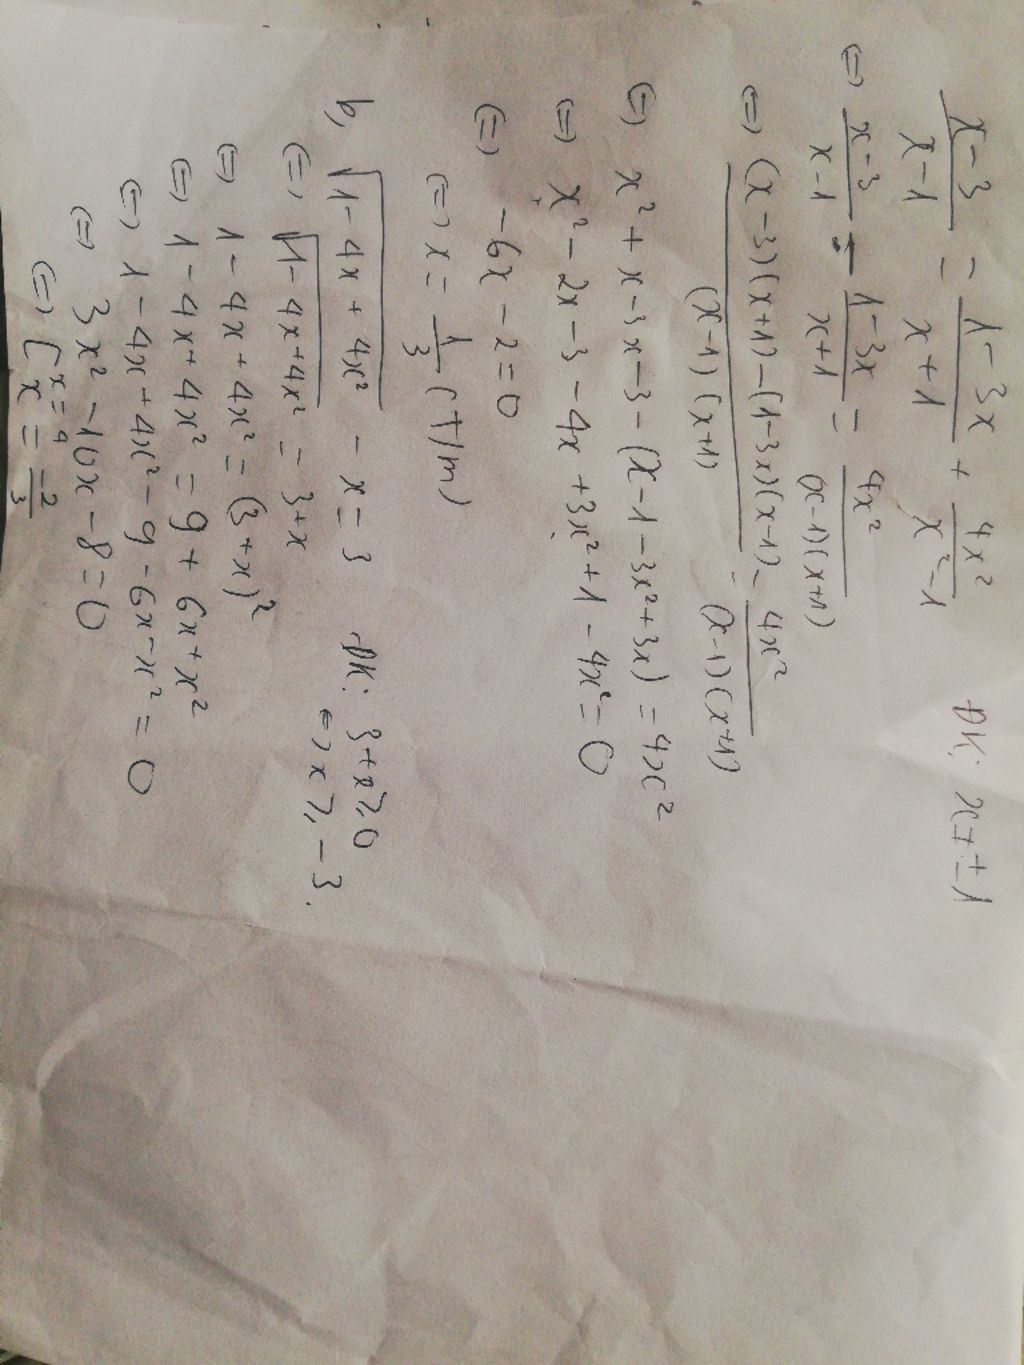 x-3/x-1 = 1-3x/x+1 + 4x²/x²-1 ĐK: x≠±1
⇔ x-3/x-1 - 1-3x/x+1 = 4x²/(x-1)(x+1)
⇔ (x-3)(x+1)-(1-3x)(x-1)/(x-1)(x+1) - 4x²/(x-1)(x+1)
⇔ x²+x-3x-3-(x-1-3x²+3x) = 4x²
⇔ x²-2x-3-4x+3x²+1-4x²=0
⇔ -6x-2=0
⇔ x= 1/3 (T/m)
b, √1-4x+4x² - x=3 ĐK: 3+x≥0
⇔ x≥-3.
⇔ √1-4x+4x² = 3+x
⇔ 1-4x+4x²=(3+x)²
⇔ 1-4x+4x² = 9+6x+x²
⇔ 1-4x+4x²-9-6x-x²=0
⇔ 3x²-10x-8=0
⇔ [x=4
x=-2/3